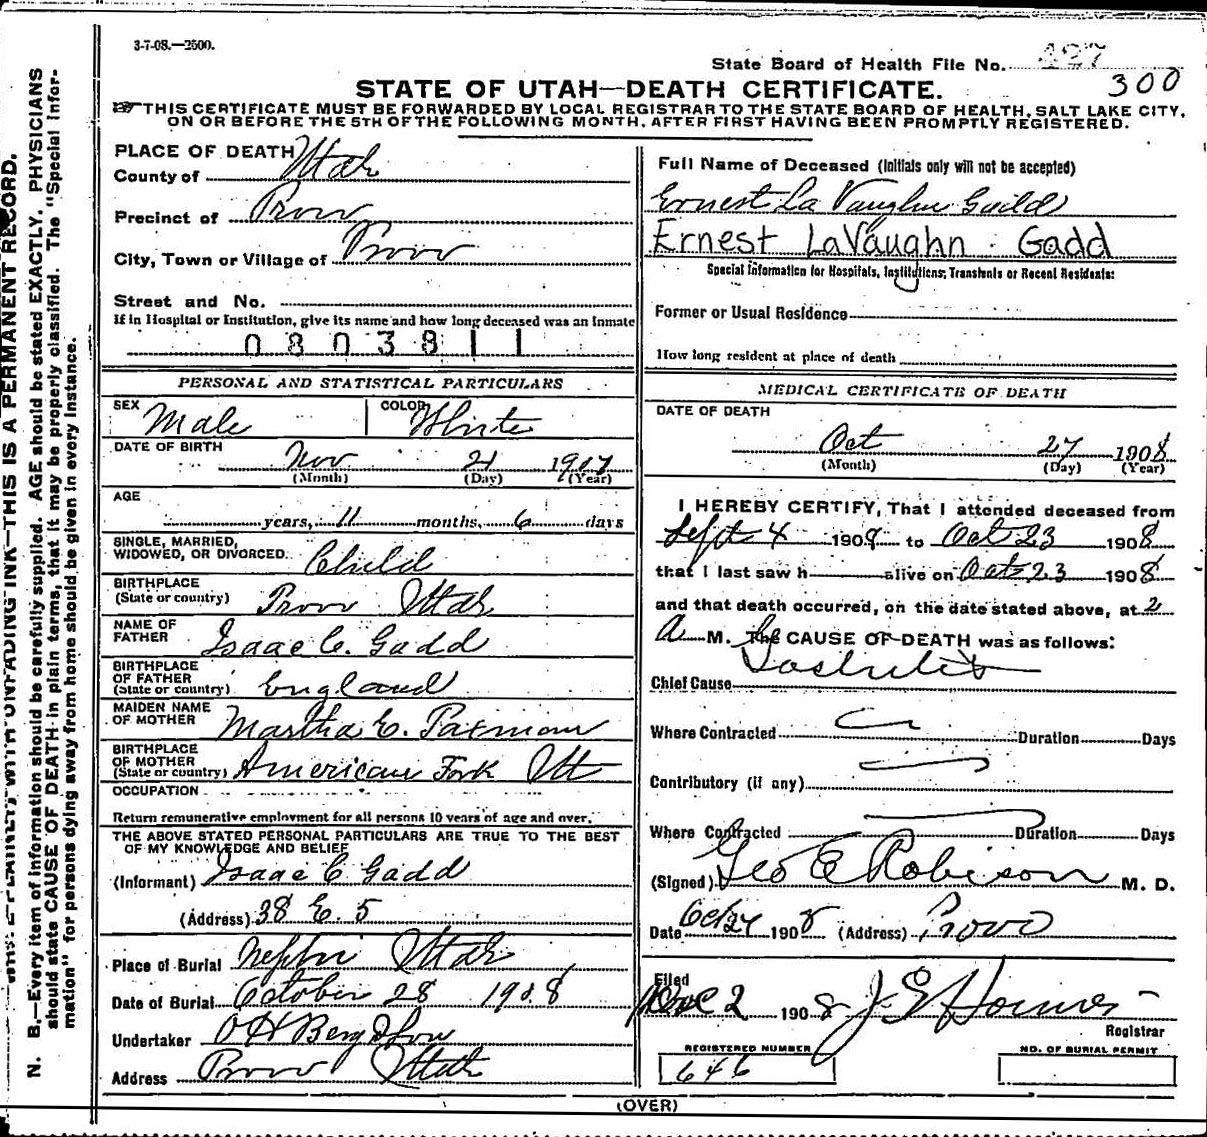 3-7-08.—2500.
State Board of Health File No. 427
300
STATE OF UTAH—DEATH CERTIFICATE.
THIS CERTIFICATE MUST BE FORWARDED BY LOCAL REGISTRAR TO THE STATE BOARD OF HEALTH, SALT LAKE CITY,
ON OR BEFORE THE 5TH OF THE FOLLOWING MONTH, AFTER FIRST HAVING BEEN PROMPTLY REGISTERED.
N. B.—Every item of information should be carefully supplied. AGE should be stated EXACTLY. PHYSICIANS
should state CAUSE OF DEATH in plain terms, that it may be properly classified. The "Special Infor-
mation" for persons dying away from home should be given in every instance.
UNFADING INK—THIS IS A PERMANENT RECORD.
PLACE OF DEATH
County of Utah
Precinct of Provo
City, Town or Village of Provo
Street and No.
If in Hospital or Institution, give its name and how long deceased was an inmate
0803811
PERSONAL AND STATISTICAL PARTICULARS
SEX Male COLOR White
DATE OF BIRTH
Nov 21 1907
(Month) (Day) (Year)
AGE
years, 11 months, 6 days
SINGLE, MARRIED,
WIDOWED, OR DIVORCED. Child
BIRTHPLACE
(State or country) Provo Utah
NAME OF
FATHER Isaac C. Gadd
BIRTHPLACE
OF FATHER
(State or country) England
MAIDEN NAME
OF MOTHER Martha E. Paxman
BIRTHPLACE
OF MOTHER
(State or country) American Fork Ut
OCCUPATION
Return remunerative employment for all persons 10 years of age and over.
THE ABOVE STATED PERSONAL PARTICULARS ARE TRUE TO THE BEST
OF MY KNOWLEDGE AND BELIEF
(Informant) Isaac C Gadd
(Address) 38 E. 5
Place of Burial Nephi Utah
Date of Burial October 28 1908
Undertaker O H Berg & Son
Address Provo Utah
Full Name of Deceased (Initials only will not be accepted)
Ernest La Vaughn Gadd
Ernest LaVaughn Gadd
Special Information for Hospitals, Institutions, Transients or Recent Residents:
Former or Usual Residence
How long resident at place of death
MEDICAL CERTIFICATE OF DEATH
DATE OF DEATH
Oct 27 1908
(Month) (Day) (Year)
I HEREBY CERTIFY, That I attended deceased from
Sept 4 1908 to Oct 23 1908
that I last saw h alive on Oct 23 1908
and that death occurred, on the date stated above, at 2
A M. The CAUSE OF DEATH was as follows:
Chief Cause
Where Contracted Duration Days
Contributory (if any)
Where Contracted Duration Days
(Signed) Geo E Robison M. D.
Date Oct 27 1908 (Address) Provo
Filed
Dec 2 1908 Registrar
REGISTERED NUMBER
646
NO. OF BURIAL PERMIT
(OVER)